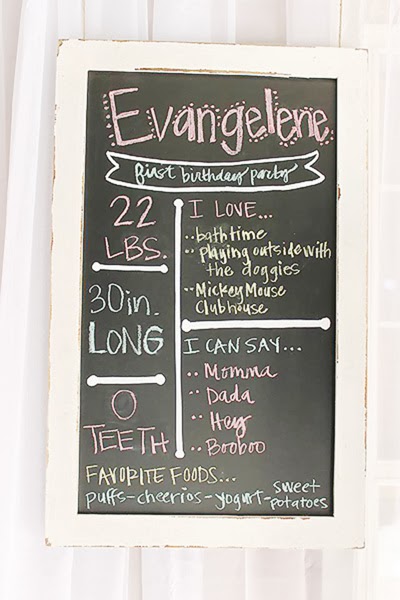 Evangelene
first birthday party
22
LBS.
30in.
LONG
0
TEETH
I LOVE...
..bathtime
..playing outside with
the doggies
..Mickey Mouse
Clubhouse
I CAN SAY...
..Momma
..Dada
..Hey
..Booboo
FAVORITE FOODS...
puffs-cheerios-yogurt-sweet
potatoes